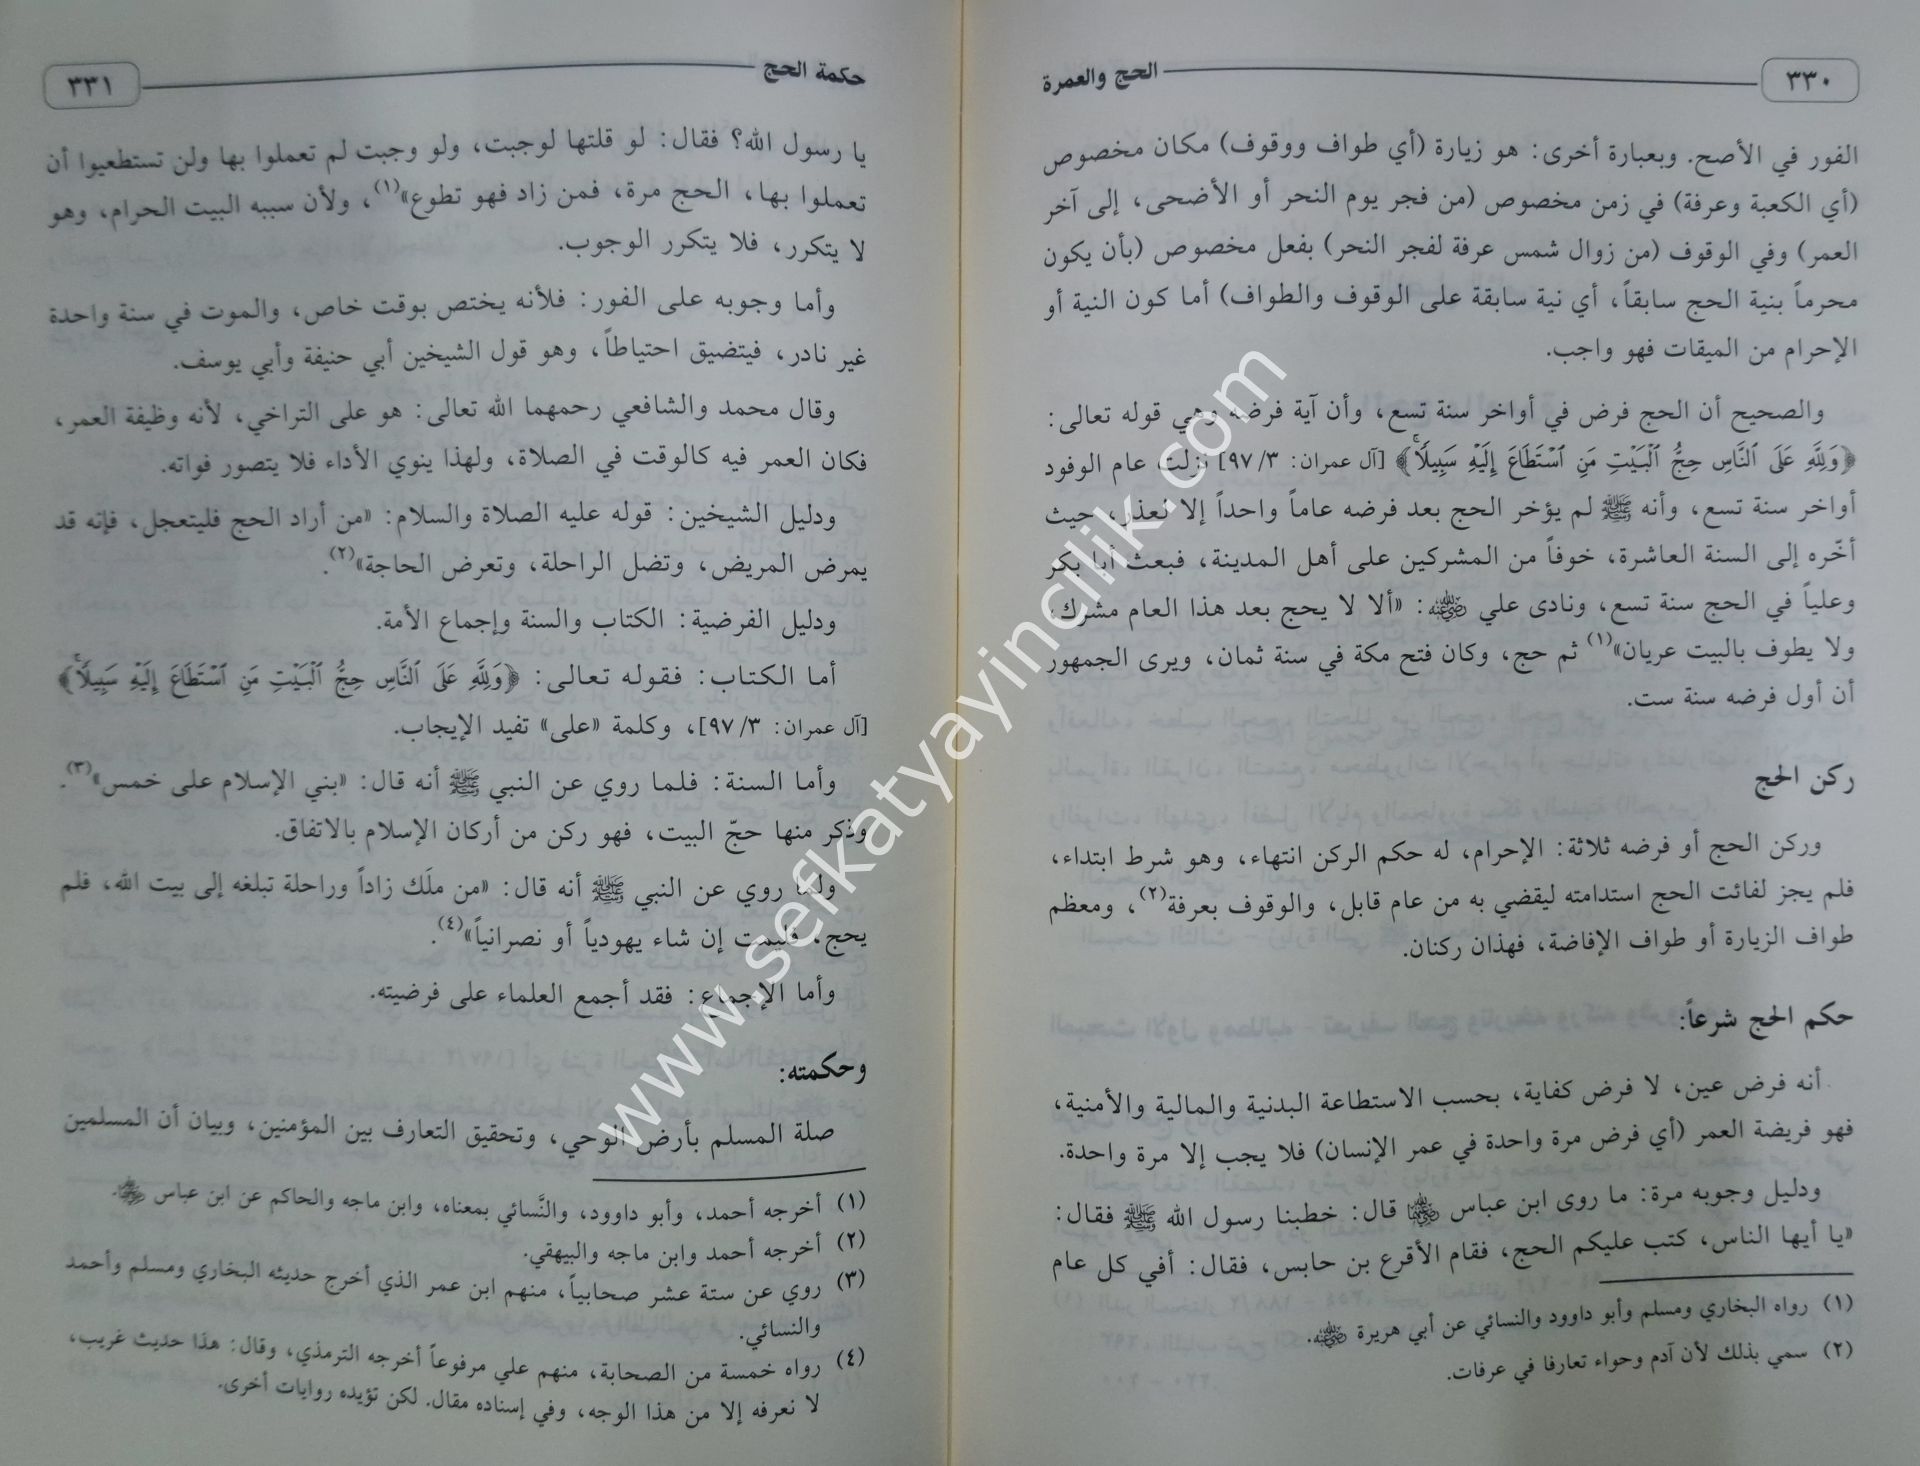 ٣٣٠
الحج والعمرة
الفور في الأصح. وبعبارة أخرى: هو زيارة (أي طواف ووقوف) مكان مخصوص
(أي الكعبة وعرفة) في زمن مخصوص (من فجر يوم النحر أو الأضحى، إلى آخر
العمر) وفي الوقوف (من زوال شمس عرفة لفجر النحر) بفعل مخصوص (بأن يكون
محرماً بنية الحج سابقاً، أي نية سابقة على الوقوف والطواف) أما كون النية أو
الإحرام من الميقات فهو واجب.
والصحيح أن الحج فرض في أواخر سنة تسع، وأن آية فرضه وهي قوله تعالى:
﴿وَلِلَّهِ عَلَى ٱلنَّاسِ حِجُّ ٱلْبَيْتِ مَنِ ٱسْتَطَاعَ إِلَيْهِ سَبِيلًا﴾ [آل عمران: ٩٧/٣] نزلت عام الوفود
أواخر سنة تسع، وأنه ﷺ لم يؤخر الحج بعد فرضه عاماً واحداً إلا لعذر، حيث
أخّره إلى السنة العاشرة، خوفاً من المشركين على أهل المدينة، فبعث أبا بكر
وعلياً في الحج سنة تسع، ونادى علي رضي الله عنه: «ألا لا يحج بعد هذا العام مشرك،
ولا يطوف بالبيت عريان»(١) ثم حج، وكان فتح مكة في سنة ثمان، ويرى الجمهور
أن أول فرضه سنة ست.
ركن الحج
وركن الحج أو فرضه ثلاثة: الإحرام، له حكم الركن انتهاء، وهو شرط ابتداء،
فلم يجز لفائت الحج استدامته ليقضي به من عام قابل، والوقوف بعرفة(٢)، ومعظم
طواف الزيارة أو طواف الإفاضة، فهذان ركنان.
حكم الحج شرعاً:
أنه فرض عين، لا فرض كفاية، بحسب الاستطاعة البدنية والمالية والأمنية،
فهو فريضة العمر (أي فرض مرة واحدة في عمر الإنسان) فلا يجب إلا مرة واحدة.
ودليل وجوبه مرة: ما روى ابن عباس رضي الله عنهما قال: خطبنا رسول الله ﷺ فقال:
«يا أيها الناس، كتب عليكم الحج، فقام الأقرع بن حابس، فقال: أفي كل عام
(١) رواه البخاري ومسلم وأبو داوود والنسائي عن أبي هريرة رضي الله عنه.
(٢) سمي بذلك لأن آدم وحواء تعارفا في عرفات.
حكمة الحج
٣٣١
يا رسول الله؟ فقال: لو قلتها لوجبت، ولو وجبت لم تعملوا بها ولن تستطعيوا أن
تعملوا بها، الحج مرة، فمن زاد فهو تطوع»(١)، ولأن سببه البيت الحرام، وهو
لا يتكرر، فلا يتكرر الوجوب.
وأما وجوبه على الفور: فلأنه يختص بوقت خاص، والموت في سنة واحدة
غير نادر، فيتضيق احتياطاً، وهو قول الشيخين أبي حنيفة وأبي يوسف.
وقال محمد والشافعي رحمهما الله تعالى: هو على التراخي، لأنه وظيفة العمر،
فكان العمر فيه كالوقت في الصلاة، ولهذا ينوي الأداء فلا يتصور فواته.
ودليل الشيخين: قوله عليه الصلاة والسلام: «من أراد الحج فليتعجل، فإنه قد
يمرض المريض، وتضل الراحلة، وتعرض الحاجة»(٢).
ودليل الفرضية: الكتاب والسنة وإجماع الأمة.
أما الكتاب: فقوله تعالى: ﴿وَلِلَّهِ عَلَى ٱلنَّاسِ حِجُّ ٱلْبَيْتِ مَنِ ٱسْتَطَاعَ إِلَيْهِ سَبِيلًا﴾
[آل عمران: ٩٧/٣]، وكلمة «على» تفيد الإيجاب.
وأما السنة: فلما روي عن النبي ﷺ أنه قال: «بني الإسلام على خمس»(٣).
وذكر منها حجّ البيت، فهو ركن من أركان الإسلام بالاتفاق.
ولما روي عن النبي ﷺ أنه قال: «من ملَك زاداً وراحلة تبلغه إلى بيت الله، فلم
يحج، فليمت إن شاء يهودياً أو نصرانياً»(٤).
وأما الإجماع: فقد أجمع العلماء على فرضيته.
وحكمته:
صلة المسلم بأرض الوحي، وتحقيق التعارف بين المؤمنين، وبيان أن المسلمين
(١) أخرجه أحمد، وأبو داوود، والنَّسائي بمعناه، وابن ماجه والحاكم عن ابن عباس رضي الله عنهما.
(٢) أخرجه أحمد وابن ماجه والبيهقي.
(٣) روي عن ستة عشر صحابياً، منهم ابن عمر الذي أخرج حديثه البخاري ومسلم وأحمد
والنسائي.
(٤) رواه خمسة من الصحابة، منهم علي مرفوعاً أخرجه الترمذي، وقال: هذا حديث غريب،
لا نعرفه إلا من هذا الوجه، وفي إسناده مقال. لكن تؤيده روايات أخرى.
www.sefkatyayincilik.com